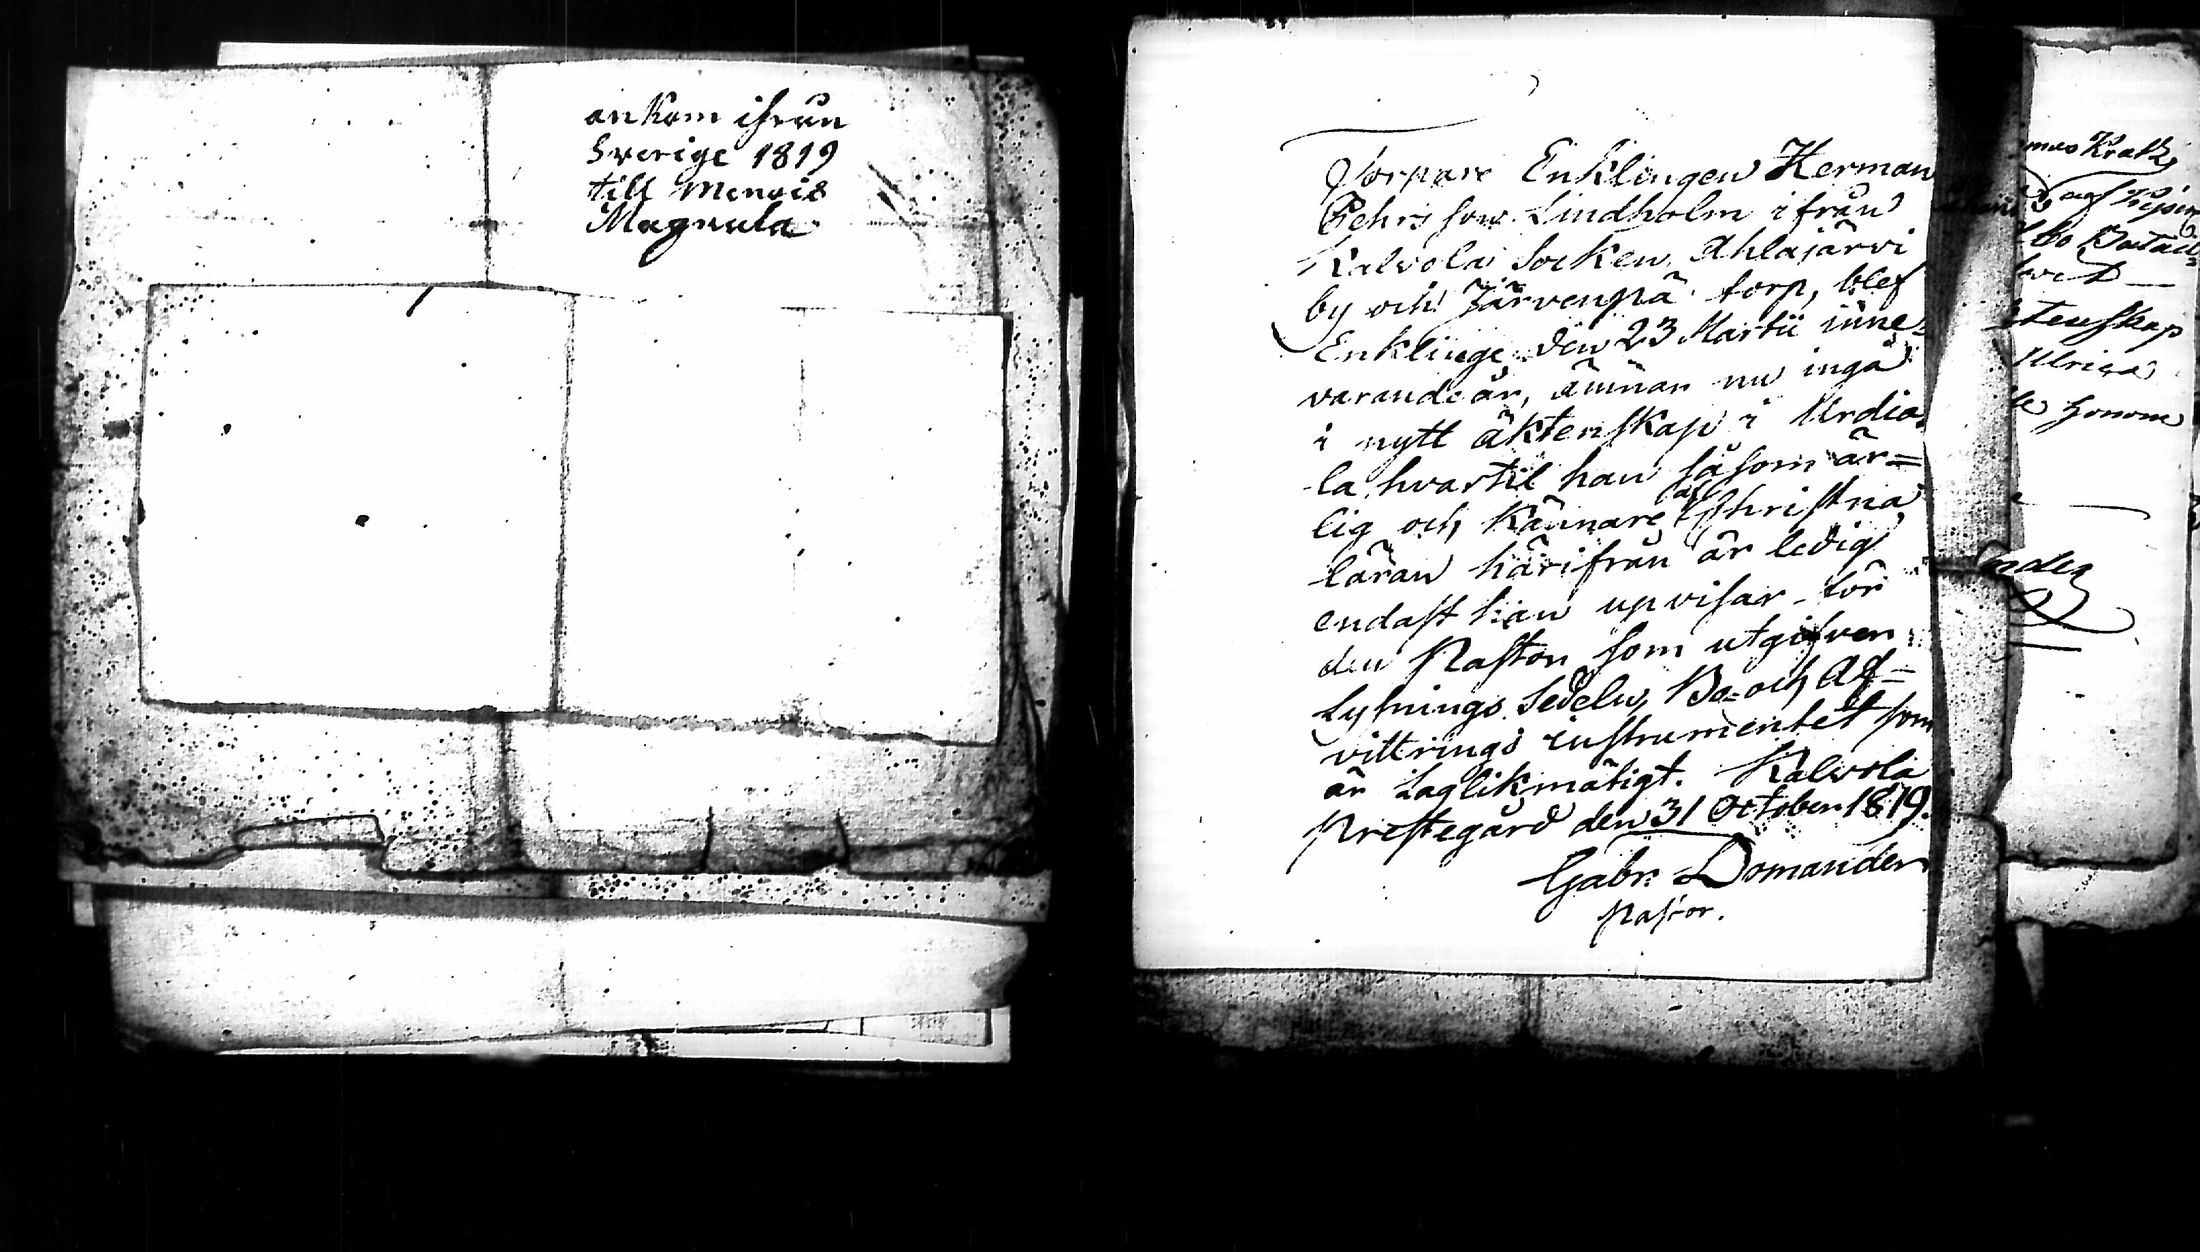 ankom ifrån
Sverige 1819
till Menois
Magnula
Torpare Enklingen Herman
Pehrs son Lindholm ifrån
Kalvola Socken, Ahlajärvi
by och Järvenpä torp, blef
Enklinge den 23 Martii inne-
varande år, ämnar nu ingå
i nytt äktenskap i Urdia-
la, hvartil han såsom är=
lig och kännare af Christna
läran härifrån är ledig
endast han upvisar för
den Pastor som utgifven
Lysnings Sedeln, Bo- och Af=
vittrings instrumentet som
är Laglikmätigt. Kalvola
Prestegård den 31 October 1819.
Gabr. Domander
Pastor.
mas Krats
bo
tenskap
Ulrica
honom
nder